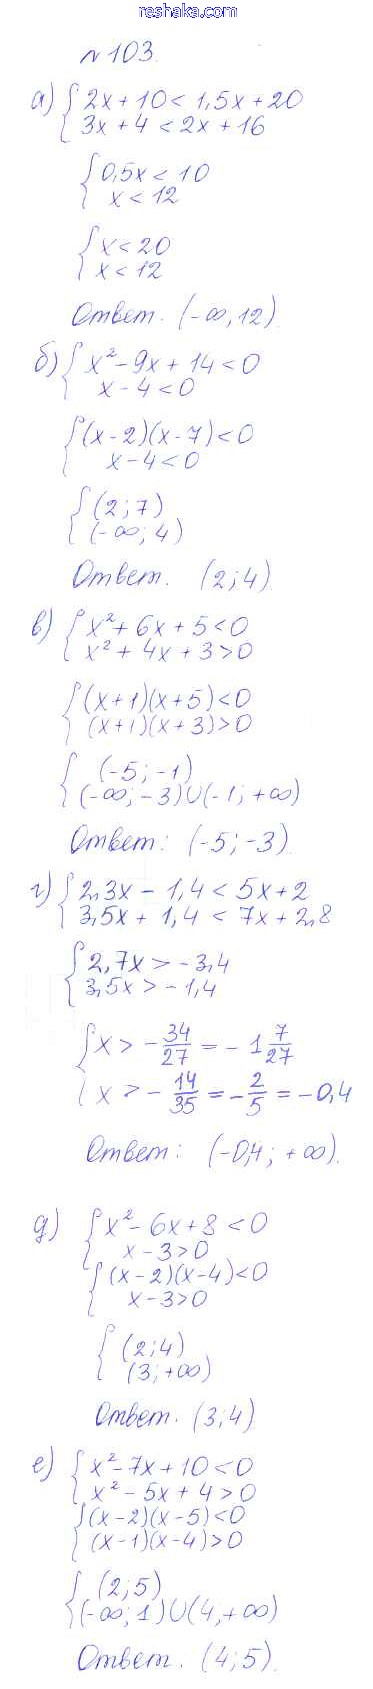 reshaka.com
№103.
а) { 2x + 10 < 1,5x + 20
3x + 4 < 2x + 16
{ 0,5x < 10
x < 12
{ x < 20
x < 12
Ответ. (-∞, 12).
б) { x² - 9x + 14 < 0
x - 4 < 0
{ (x - 2)(x - 7) < 0
x - 4 < 0
{ (2; 7)
(-∞; 4)
Ответ. (2; 4).
в) { x² + 6x + 5 < 0
x² + 4x + 3 > 0
{ (x + 1)(x + 5) < 0
(x + 1)(x + 3) > 0
{ (-5; -1)
(-∞; -3) ∪ (-1; +∞)
Ответ: (-5; -3).
г) { 2,3x - 1,4 < 5x + 2
3,5x + 1,4 < 7x + 2,8
{ 2,7x > -3,4
3,5x > -1,4
{ x > -34/27 = -1 7/27
x > -14/35 = -2/5 = -0,4
Ответ: (-0,4; +∞).
д) { x² - 6x + 8 < 0
x - 3 > 0
{ (x - 2)(x - 4) < 0
x - 3 > 0
{ (2; 4)
(3; +∞)
Ответ. (3; 4)
е) { x² - 7x + 10 < 0
x² - 5x + 4 > 0
{ (x - 2)(x - 5) < 0
(x - 1)(x - 4) > 0
{ (2; 5)
(-∞; 1) ∪ (4, +∞)
Ответ. (4; 5).